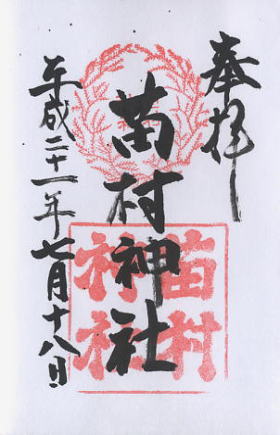 奉拝
苗村神社
苗村
神社
平成二十一年七月十八日